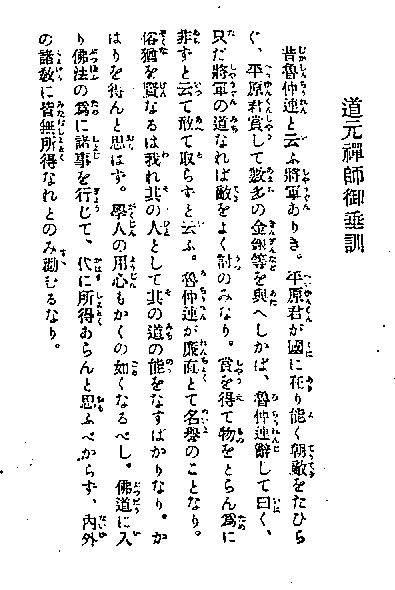 道元禪師御垂訓
昔魯仲連と云ふ將軍ありき。平原君が國に在り能く朝敵をたひら
ぐ、平原君賞して數多の金銀等を與へしかば、魯仲連辭して曰く、
只だ將軍の道なれば敵をよく討のみなり。賞を得て物をとらん爲に
非ずと云て敢て取らずと云ふ。魯仲連が廉直とて名譽のことなり。
俗猶を賢なるは我れ其の人として其の道の能をなすばかりなり。か
はりを得んと思はず。學人の用心もかくの如くなるべし。佛道に入
り佛法の爲に諸事を行じて、代に所得あらんと思ふべからず、內外
の諸敎に皆無所得なれとのみ勸むるなり。